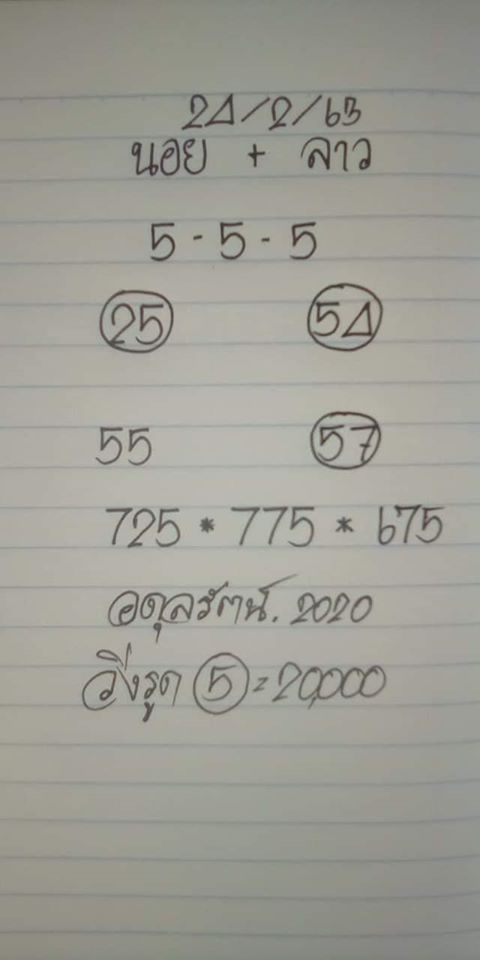 24/2/63
นอย + ลาว
5 - 5 - 5
25 54
55 57
725 * 775 * 675
อดุลรัตน์. 2020
วิ่งรูด 5 = 20,000